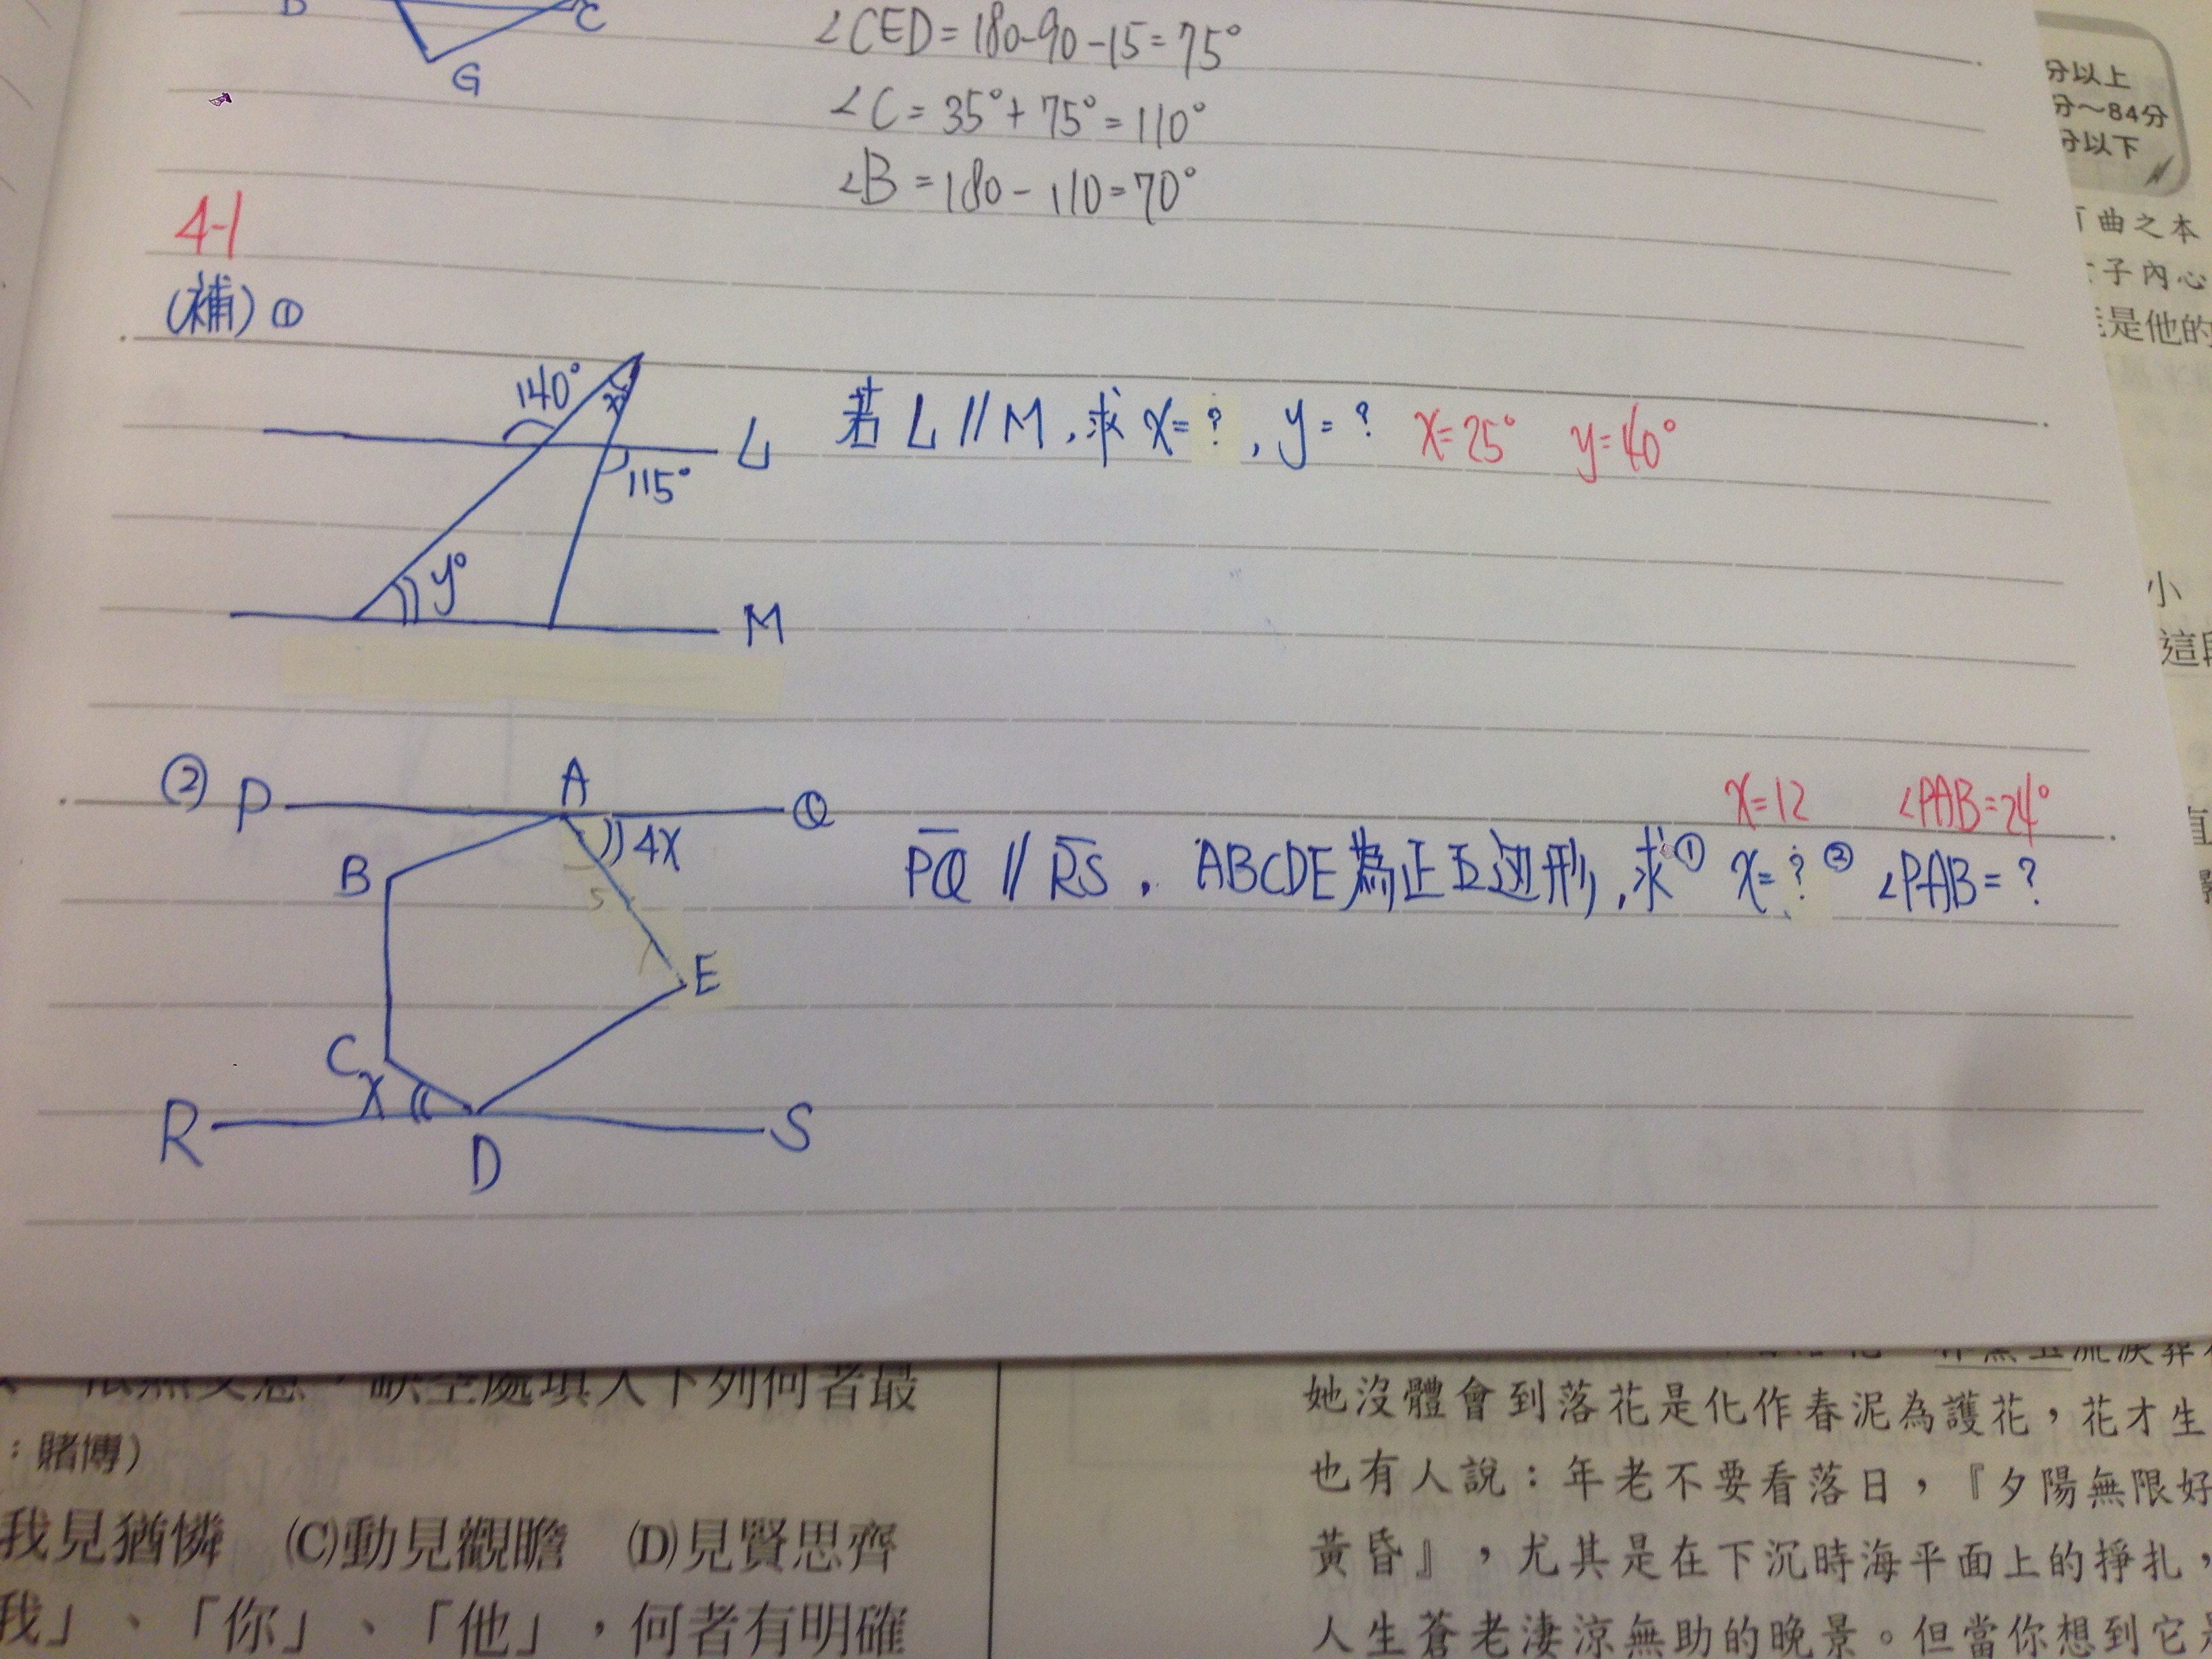 C
G
∠CED=180-90-15=75°
∠C=35°+75°=110°
∠B=180-110=70°
4-1
(補)①
140°
x
L
115°
y°
M
若L//M,求x=?,y=? x=25° y=40°
②
P
A
Q
4x
B
5
E
C
x
R
D
S
x=12 ∠PAB=24°
PQ // RS, ABCDE為正五边形,求① x=? ② ∠PAB=?
分以上
分～84分
分以下
曲之本
子內心
是他的
小
這
缺空處填入下列何者最
：賭博）
我見猶憐 (C)動見觀瞻 (D)見賢思齊
我」、「你」、「他」，何者有明確
她沒體會到落花是化作春泥為護花，花才生
也有人說：年老不要看落日，『夕陽無限好
黃昏』，尤其是在下沉時海平面上的掙扎，
人生蒼老淒涼無助的晚景。但當你想到它